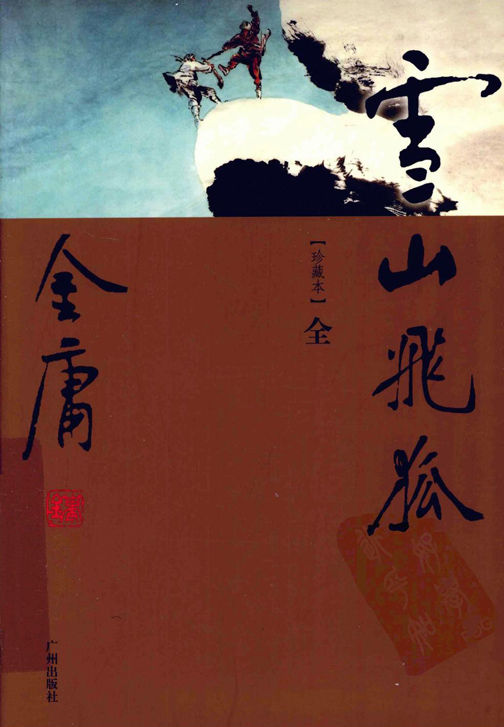 雪山飞狐
【珍藏本】
全
金庸
广州出版社